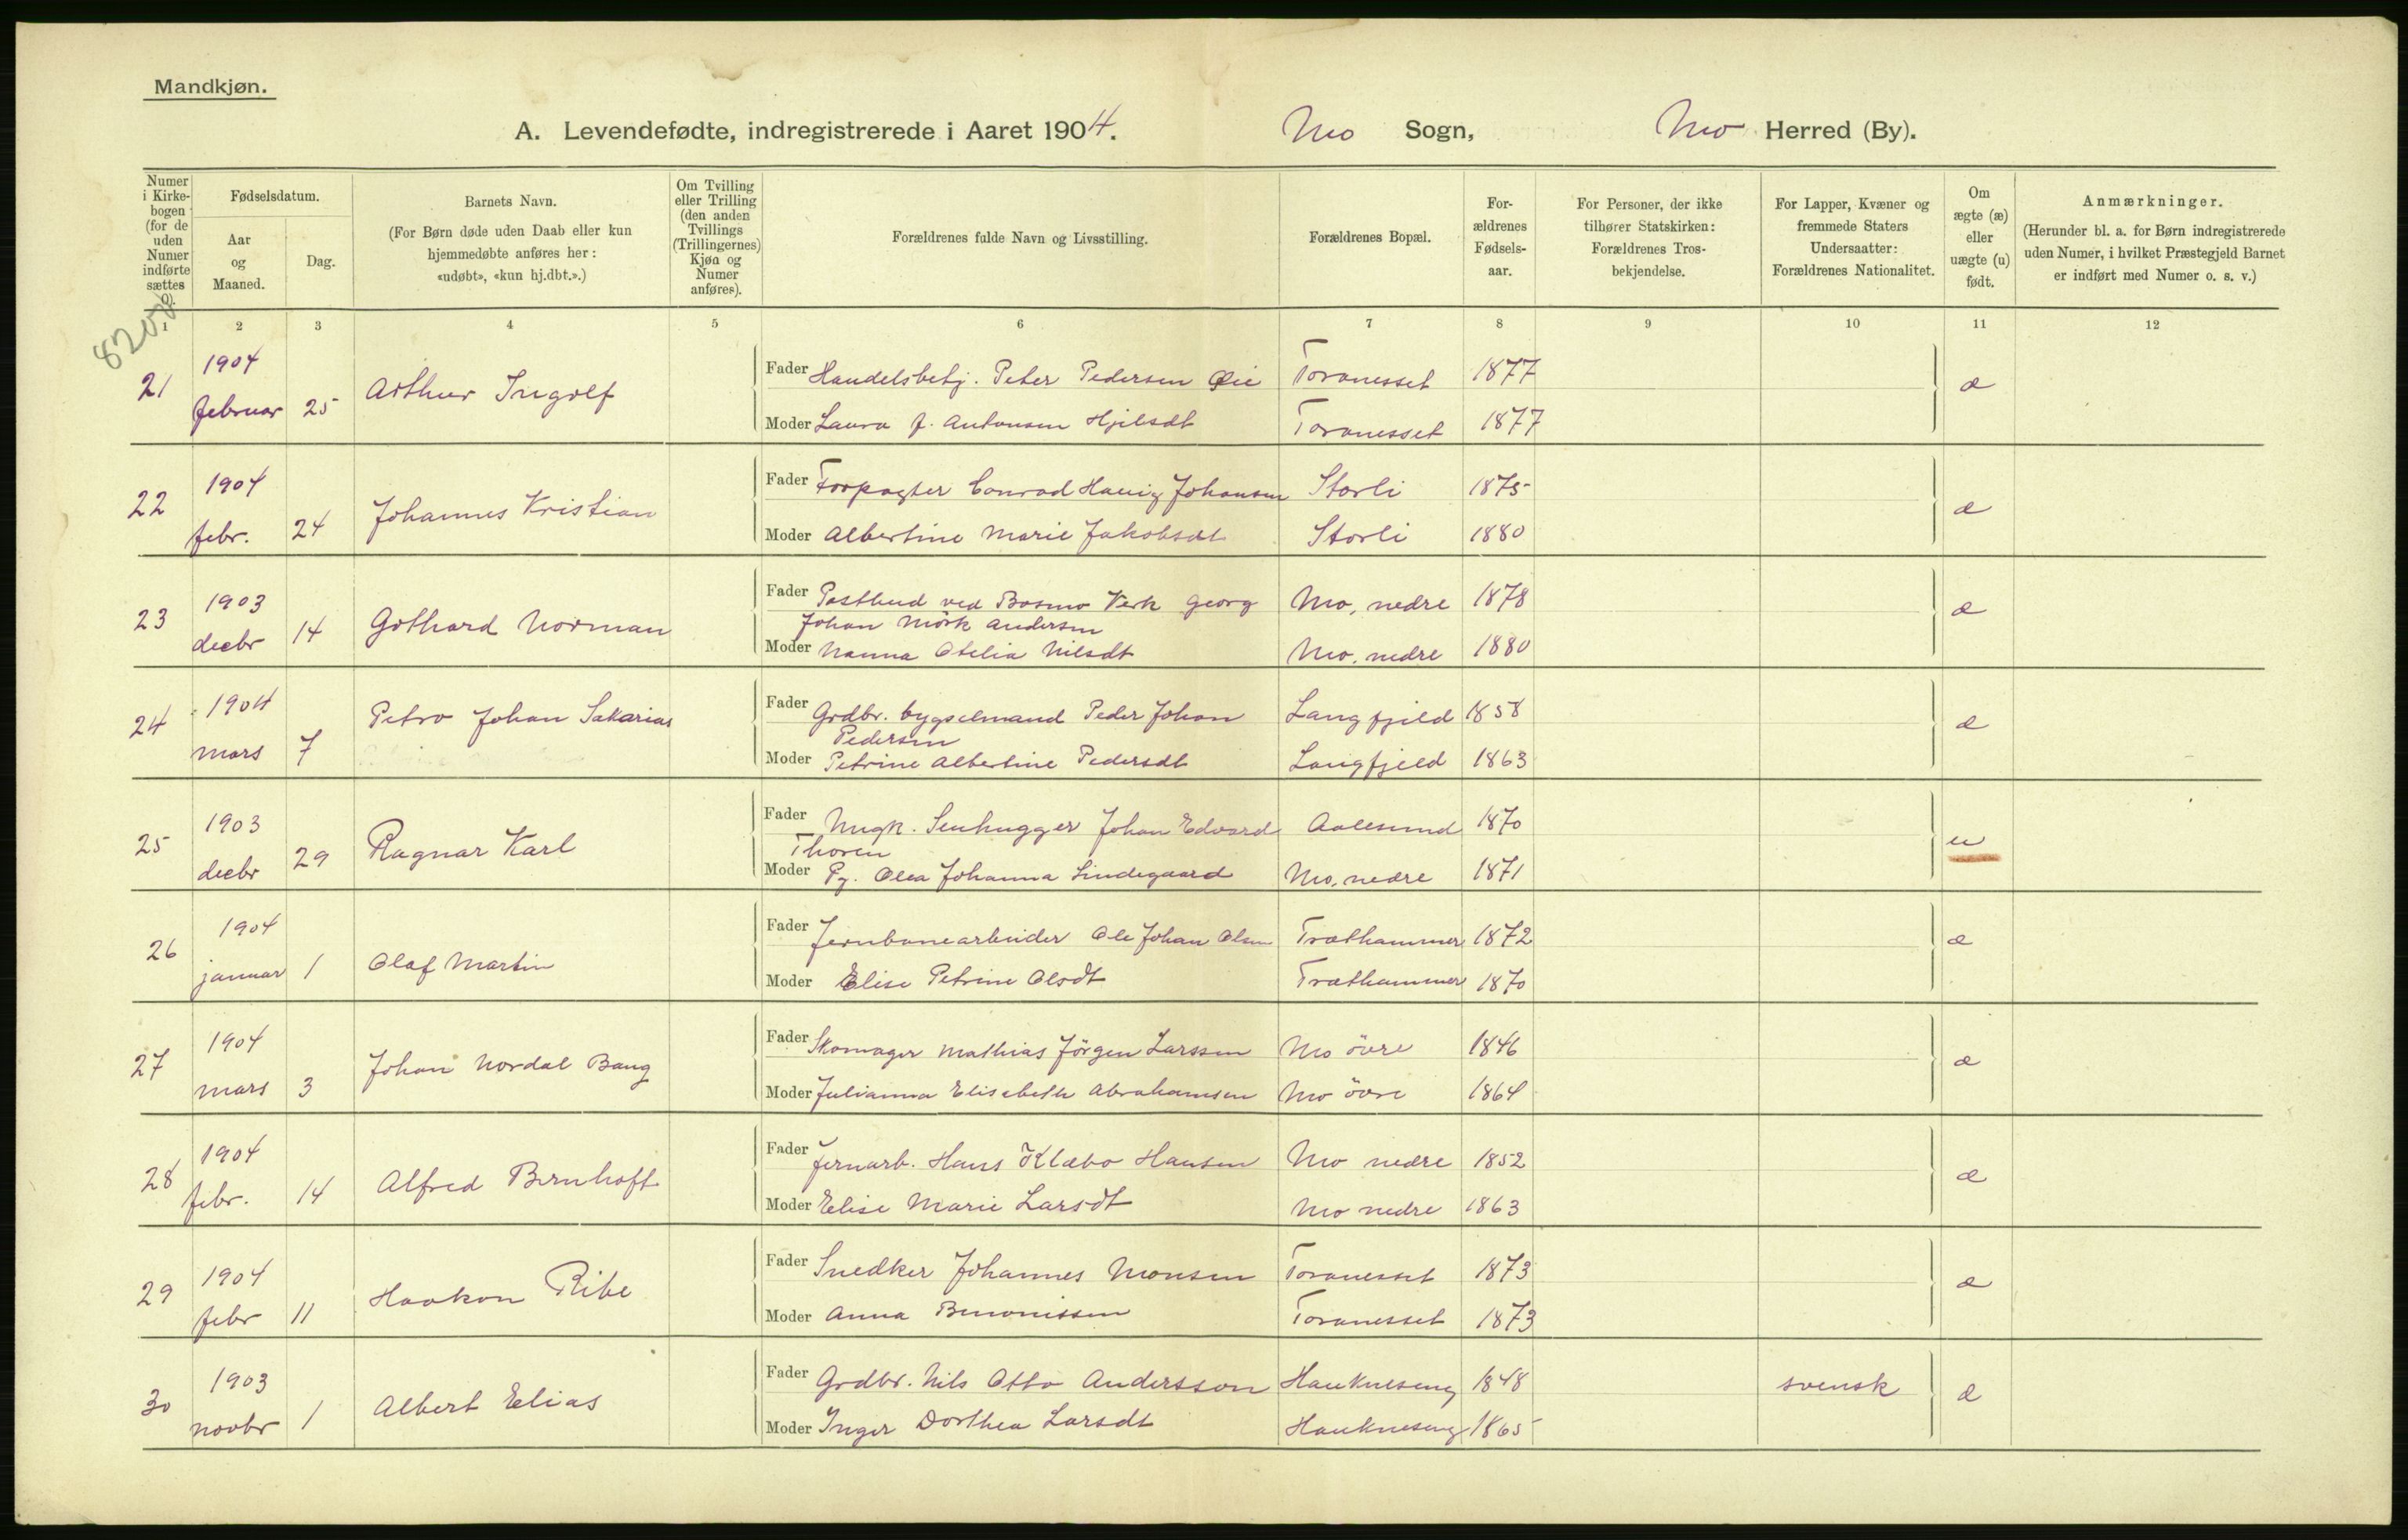 Mandkjøn.
A. Levendefødte, indregistrerede i Aaret 1904. Mo Sogn, Mo Herred (By).
Numer i Kirkebogen (for de uden Numer indførte sættes 0).
Fødselsdatum.
Aar og Maaned.
Dag.
Barnets Navn.
(For Børn døde uden Daab eller kun hjemmedøbte anføres her: «udøbt», «kun hj.dbt.».)
Om Tvilling eller Trilling (den anden Tvillings (Trillingernes) Kjøn og Numer anføres).
Forældrenes fulde Navn og Livsstilling.
Forældrenes Bopæl.
Forældrenes Fødselsaar.
For Personer, der ikke tilhører Statskirken: Forældrenes Trosbekjendelse.
For Lapper, Kvæner og fremmede Staters Undersaatter: Forældrenes Nationalitet.
Om ægte (æ) eller uægte (u) født.
Anmærkninger.
(Herunder bl. a. for Børn indregistrerede uden Numer, i hvilket Præstegjeld Barnet er indført med Numer o. s. v.)
1 2 3 4 5 6 7 8 9 10 11 12
21 1904 februar 25 Arthur Ingolf
Fader Handelsbetj. Peter Pedersen Øie Toranesset 1877 æ
Moder Laura f. Antonsen Hjelsdt Toranesset 1877
22 1904 febr. 24 Johannes Kristian
Fader Forpagter Conrad Hauig Johansen Storli 1875 æ
Moder Albertine Marie Jakobsdt Storli 1880
23 1903 decbr 14 Gothard Norman
Fader Postbud ved Bosmo Verk Georg Mo, nedre 1878 æ
Johan Mörk Andersen
Moder Nanna Otelia Nilsdt Mo, nedre 1880
24 1904 mars 7 Petro Johan Sakarias
Fader Grdbr. bygselmand Peder Johan Langfjeld 1858 æ
Pedersen
Moder Petrine Albertine Pedersdt Langfjeld 1863
25 1903 decbr 29 Ragnar Karl
Fader Ungk. Stenhugger Johan Edvard Aalesund 1870 u
Thoren
Moder Pg. Olea Johanna Lindegaard Mo, nedre 1871
26 1904 januar 1 Olaf Martin
Fader Jernbanearbeider Ole Johan Olsen Træthammer 1872 æ
Moder Elise Petrine Olsdt Træthammer 1870
27 1904 mars 3 Johan Nordal Bang
Fader Skomager Mathias Jörgen Larssen Mo övre 1846 æ
Moder Julianna Elisabeth Abrahamsen Mo övre 1864
28 1904 febr. 14 Alfred Bernhoft
Fader Jernarb. Hans Klæbo Hansen Mo nedre 1852 æ
Moder Elise Marie Larsdt Mo nedre 1863
29 1904 febr 11 Haakon Ribe
Fader Snedker Johannes Monsen Toranesset 1873 æ
Moder Anna Benonissen Toranesset 1873
30 1903 novbr 1 Albert Elias
Fader Grdbr. Nils Otto Andersson Haukneseng 1848 svensk æ
Moder Inger Dorthea Larsdt Haukneseng 1865